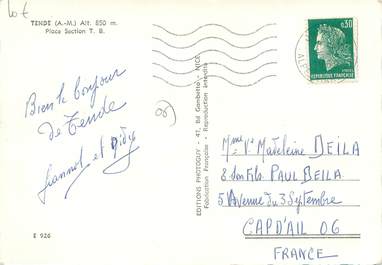 TENDE (A.-M.) Alt. 850 m.
Place Section T. B.
Bien le bonjour
de Tende
et
E 926
EDITIONS PHOTOGUY - 41, Bd Gambetta - NICE
Fabrication Française - Reproduction interdite
0,30
REPUBLIQUE FRANÇAISE
Mme Ve Madeleine DEILA
& son Fils PAUL BEILA
5 Avenue du 3 Septembre
CAP D'AIL 06
FRANCE